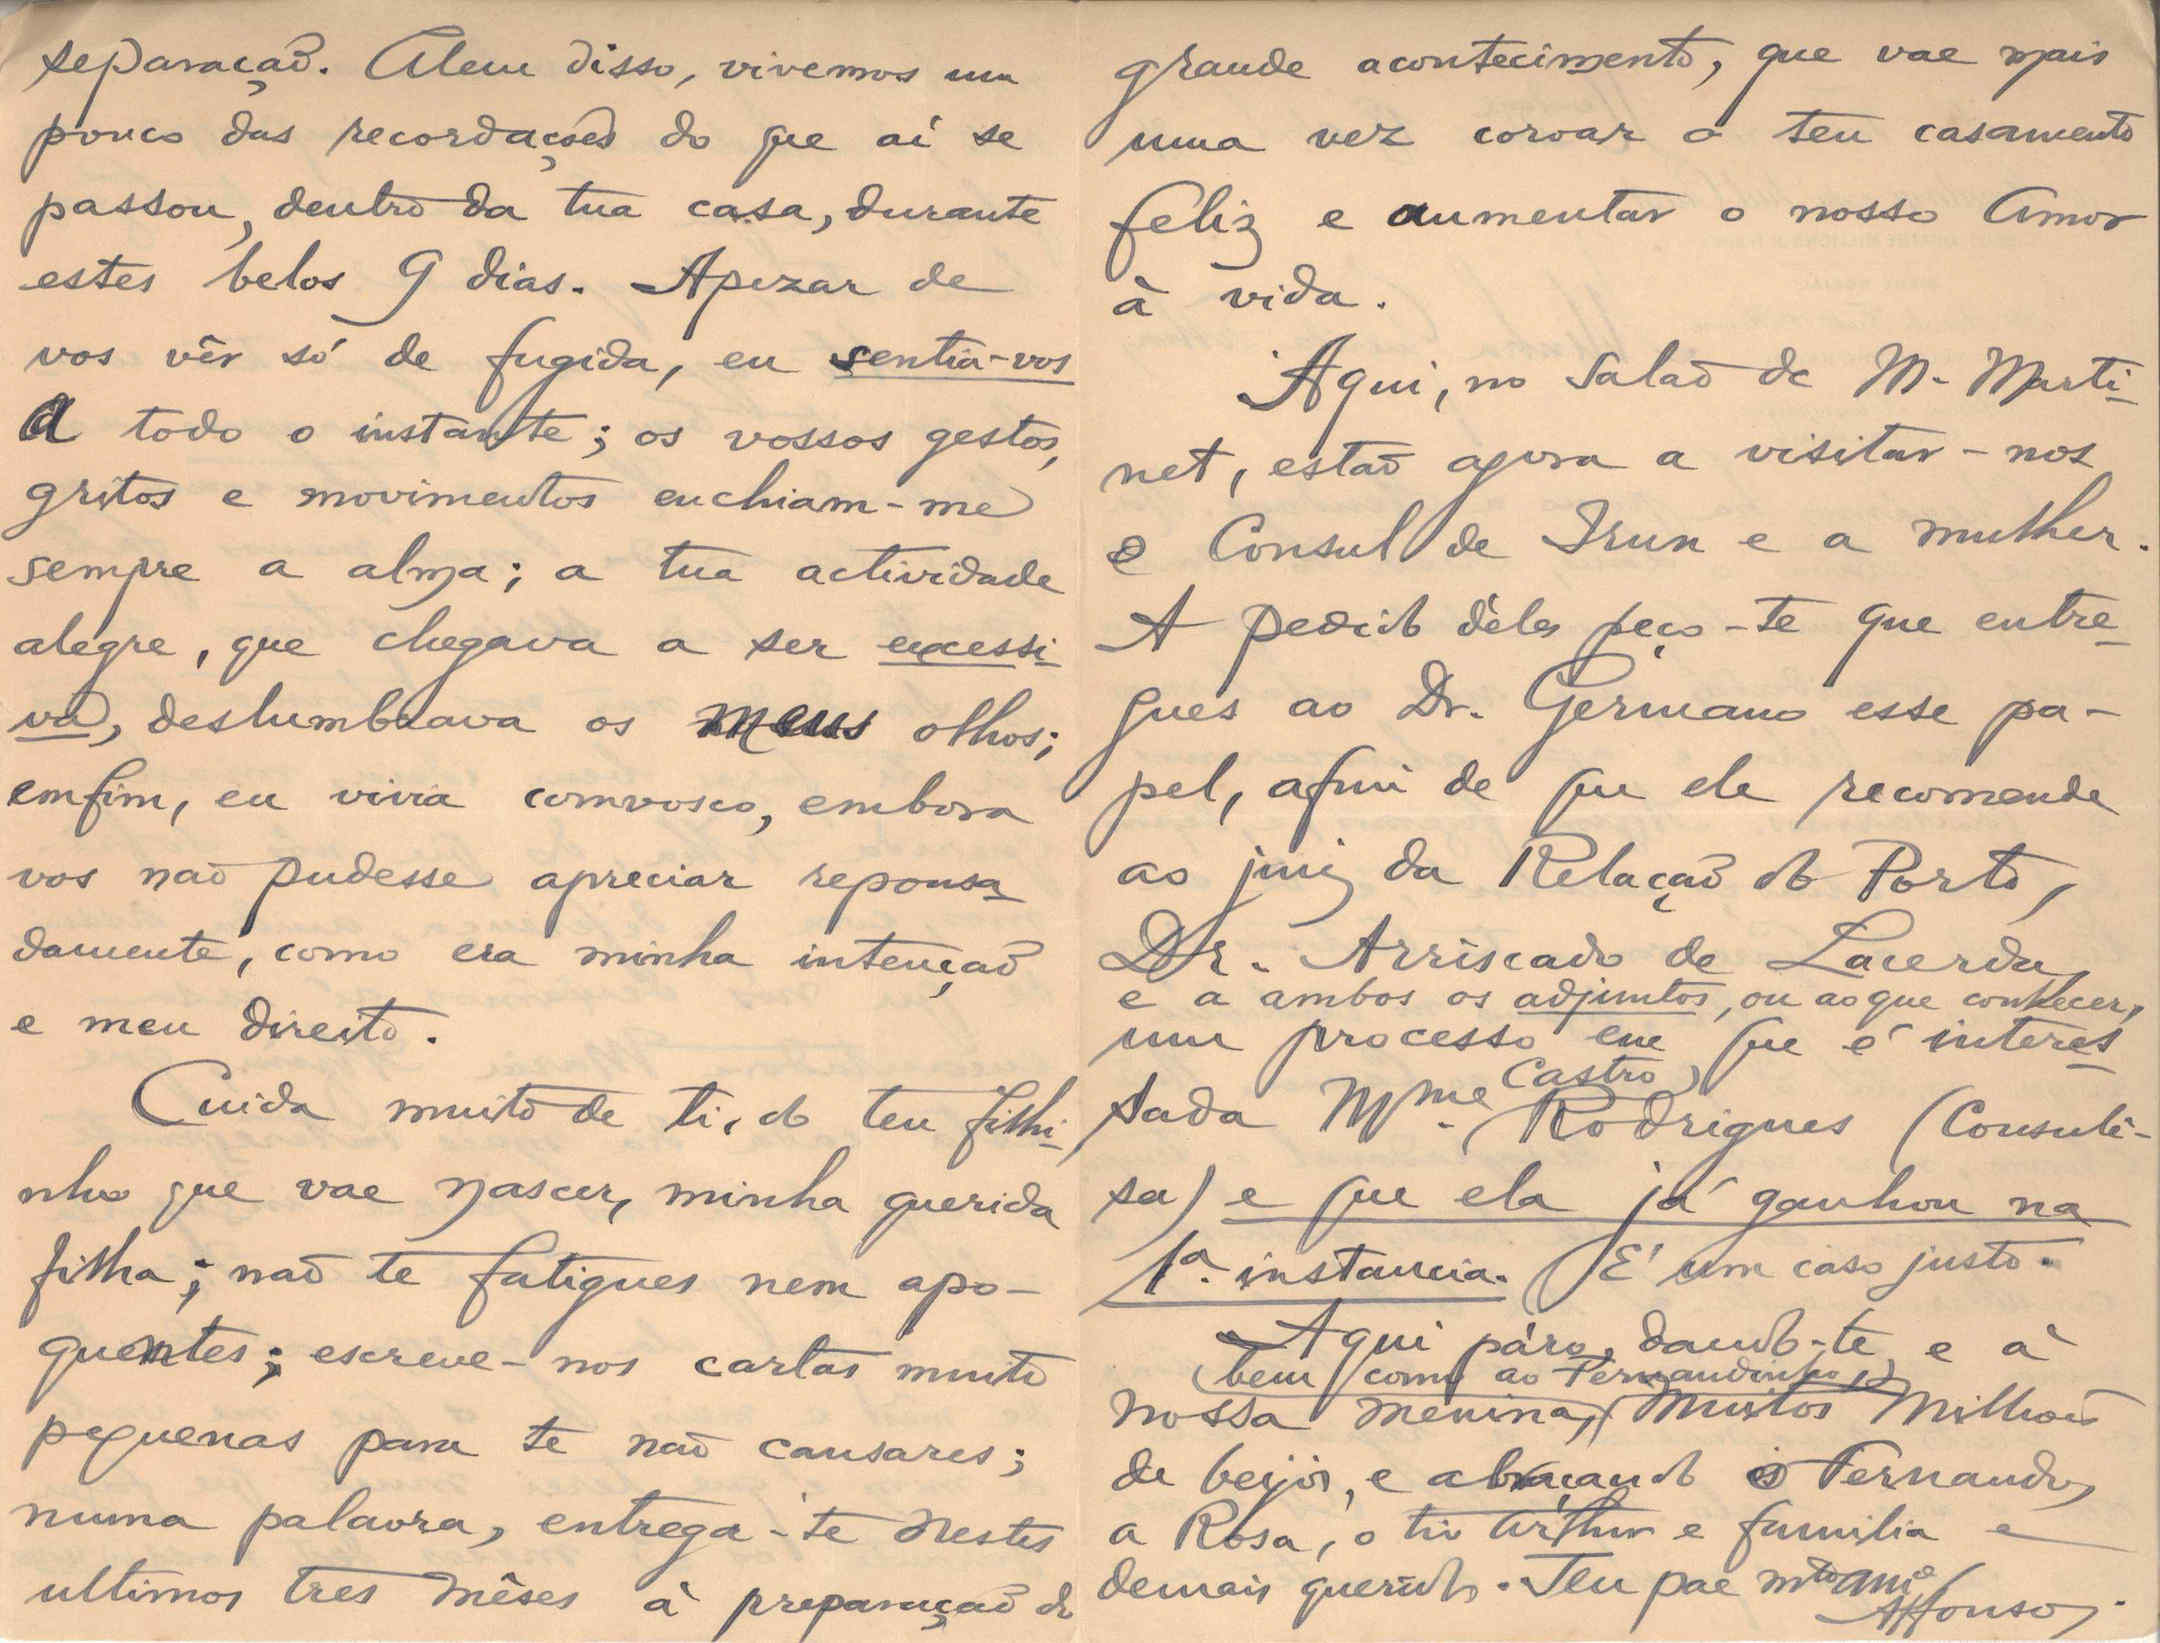 separação. Alem disso, vivemos um
pouco das recordações do que aí se
passou, dentro da tua casa, durante
estes belos 9 dias. Apezar de
vos vêr só de fugida, eu sentia-vos
a todo o instante; os vossos gestos,
gritos e movimentos enchiam-me
sempre a alma; a tua actividade
alegre, que chegava a ser excessi-
va, deslumbrava os meus olhos;
emfim, eu vivia comvosco, embora
vos não pudesse apreciar repousa-
damente, como era minha intenção
e meu direito.
Cuida muito de ti, do teu filhi-
nho que vae nascer, minha querida
filha; não te fatigues nem apo-
quentes; escreve-nos cartas muito
pequenas para te não cansares;
numa palavra, entrega-te nestes
ultimos tres mêses à preparação do
grande acontecimento, que vae mais
uma vez coroar o teu casamento
feliz e aumentar o nosso amor
à vida.
Aqui, no salão de M. Marti-
net, estão agora a visitar-nos
o Consul de Irun e a mulher.
A pedido dêles peço-te que entre-
gues ao Dr. Germano esse pa-
pel, afim de que ele recomende
ao juiz da Relação do Porto,
Dr. Arriscado de Lacerda,
e a ambos os adjuntos, ou ao que conhecer,
um processo em que é interes-
sada Mme. Castro Rodrigues (Consule-
sa) e que ela já ganhou na
1ª. instancia. É um caso justo.
Aqui páro, dando-te e à
(bem como ao Fernandinho)
nossa menina, muitos milhões
de beijos, e abraçando o Fernando,
a Rosa, o tio Arthur e familia e
demais queridos. Teu pae mto amo
Affonso.